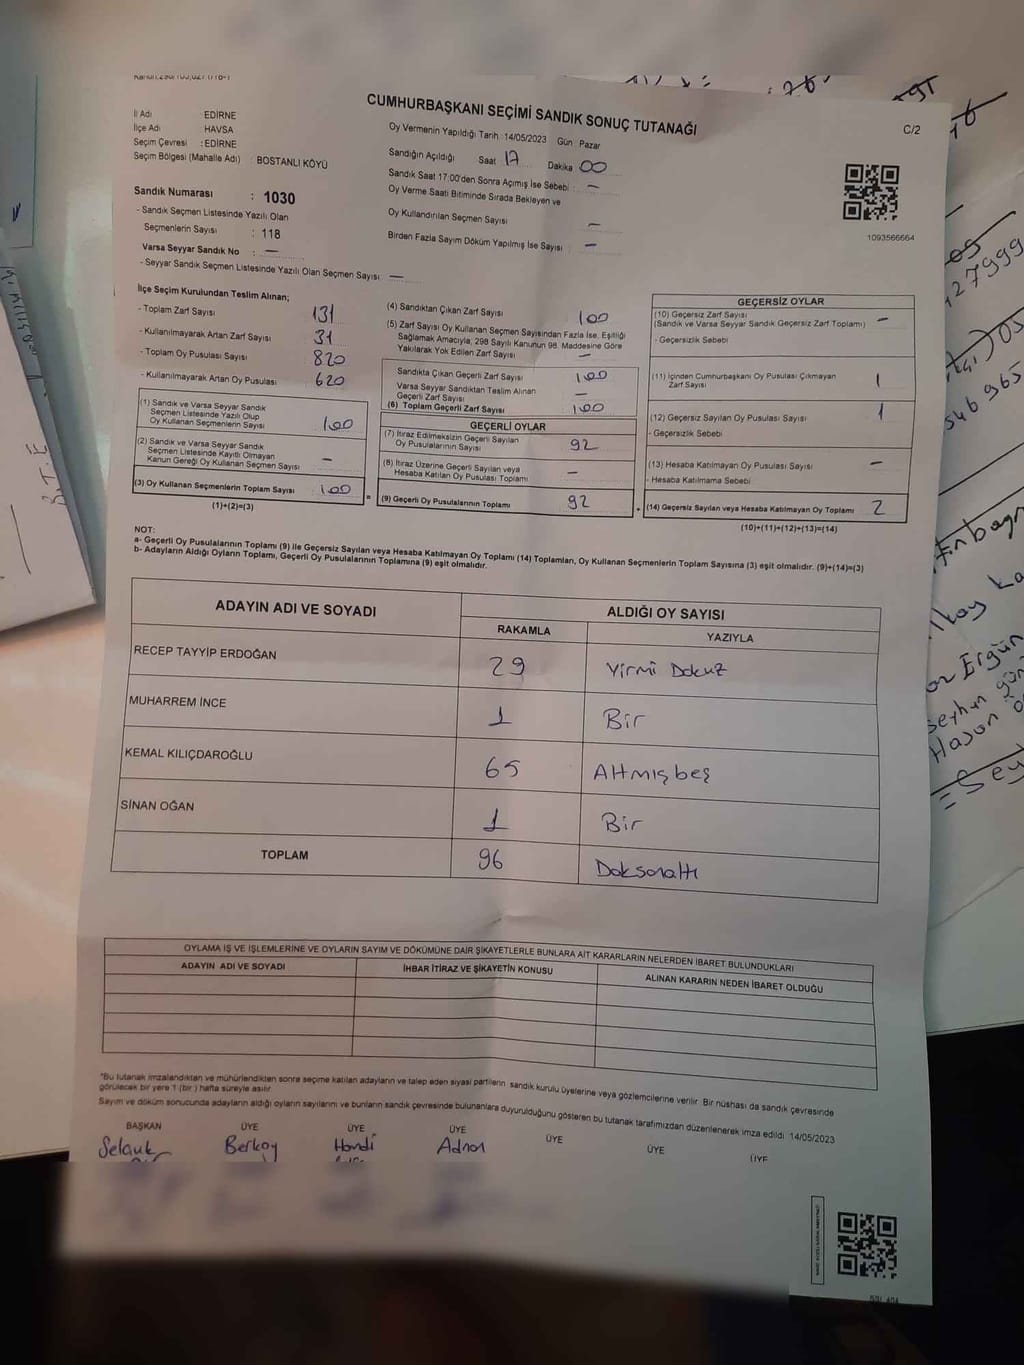 CUMHURBAŞKANI SEÇİMİ SANDIK SONUÇ TUTANAĞI
C/2
İl Adı EDİRNE
İlçe Adı HAVSA
Seçim Çevresi : EDİRNE
Seçim Bölgesi (Mahalle Adı) BOSTANLI KÖYÜ
Sandık Numarası : 1030
- Sandık Seçmen Listesinde Yazılı Olan
Seçmenlerin Sayısı : 118
Varsa Seyyar Sandık No : —
- Seyyar Sandık Seçmen Listesinde Yazılı Olan Seçmen Sayısı —
Oy Vermenin Yapıldığı Tarih 14/05/2023 Gün Pazar
Sandığın Açıldığı Saat 17 Dakika 00
Sandık Saat 17:00'den Sonra Açımış İse Sebebi : —
Oy Verme Saati Bitiminde Sırada Bekleyen ve
Oy Kullandırılan Seçmen Sayısı —
Birden Fazla Sayım Döküm Yapılmış İse Sayısı : —
1093566664
İlçe Seçim Kurulundan Teslim Alınan;
- Toplam Zarf Sayısı 131
- Kullanılmayarak Artan Zarf Sayısı 31
- Toplam Oy Pusulası Sayısı 820
- Kullanılmayarak Artan Oy Pusulası 620
(1) Sandık ve Varsa Seyyar Sandık
Seçmen Listesinde Yazılı Olup
Oy Kullanan Seçmenlerin Sayısı 100
(2) Sandık ve Varsa Seyyar Sandık
Seçmen Listesinde Kayıtlı Olmayan
Kanun Gereği Oy Kullanan Seçmen Sayısı —
(3) Oy Kullanan Seçmenlerin Toplam Sayısı 100
(1)+(2)=(3)
(4) Sandıktan Çıkan Zarf Sayısı 100
(5) Zarf Sayısı Oy Kullanan Seçmen Sayısından Fazla İse, Eşitliği
Sağlamak Amacıyla, 298 Sayılı Kanunun 98. Maddesine Göre
Yakılarak Yok Edilen Zarf Sayısı —
Sandıkta Çıkan Geçerli Zarf Sayısı 100
Varsa Seyyar Sandıktan Teslim Alınan
Geçerli Zarf Sayısı —
(6) Toplam Geçerli Zarf Sayısı 100
GEÇERLİ OYLAR
(7) İtiraz Edilmeksizin Geçerli Sayılan
Oy Pusulalarının Sayısı 92
(8) İtiraz Üzerine Geçerli Sayılan veya
Hesaba Katılan Oy Pusulası Toplamı —
= (9) Geçerli Oy Pusulalarının Toplamı 92
GEÇERSİZ OYLAR
(10) Geçersiz Zarf Sayısı —
(Sandık ve Varsa Seyyar Sandık Geçersiz Zarf Toplamı)
- Geçersizlik Sebebi
(11) İçinden Cumhurbaşkanı Oy Pusulası Çıkmayan
Zarf Sayısı 1
(12) Geçersiz Sayılan Oy Pusulası Sayısı 1
- Geçersizlik Sebebi
(13) Hesaba Katılmayan Oy Pusulası Sayısı —
- Hesaba Katılmama Sebebi
+ (14) Geçersiz Sayılan veya Hesaba Katılmayan Oy Toplamı 2
(10)+(11)+(12)+(13)=(14)
NOT:
a- Geçerli Oy Pusulalarının Toplamı (9) ile Geçersiz Sayılan veya Hesaba Katılmayan Oy Toplamı (14) Toplamları, Oy Kullanan Seçmenlerin Toplam Sayısına (3) eşit olmalıdır. (9)+(14)=(3)
b- Adayların Aldığı Oyların Toplamı, Geçerli Oy Pusulalarının Toplamına (9) eşit olmalıdır.
ADAYIN ADI VE SOYADI
ALDIĞI OY SAYISI
RAKAMLA YAZIYLA
RECEP TAYYİP ERDOĞAN 29 Yirmi Dokuz
MUHARREM İNCE 1 Bir
KEMAL KILIÇDAROĞLU 65 Altmışbeş
SİNAN OĞAN 1 Bir
TOPLAM 96 Doksanaltı
OYLAMA İŞ VE İŞLEMLERİNE VE OYLARIN SAYIM VE DÖKÜMÜNE DAİR ŞİKAYETLERLE BUNLARA AİT KARARLARIN NELERDEN İBARET BULUNDUKLARI
ADAYIN ADI VE SOYADI İHBAR İTİRAZ VE ŞİKAYETİN KONUSU ALINAN KARARIN NEDEN İBARET OLDUĞU
*Bu tutanak imzalandıktan ve mühürlendikten sonra seçime katılan adayların ve talep eden siyasi partilerin sandık kurulu üyelerine veya gözlemcilerine verilir. Bir nüshası da sandık çevresinde
görülecek bir yere 1 (bir) hafta süreyle asılır.
Sayım ve döküm sonucunda adayların aldığı oyların sayılarını ve bunların sandık çevresinde bulunanlara duyurulduğunu gösteren bu tutanak tarafımızdan düzenlenerek imza edildi. 14/05/2023
BAŞKAN ÜYE ÜYE ÜYE ÜYE ÜYE ÜYE
Selçuk Berkay Hamdi Adnan
B.T.E
27999
546 965
Ergün
Seyhun
Hasan